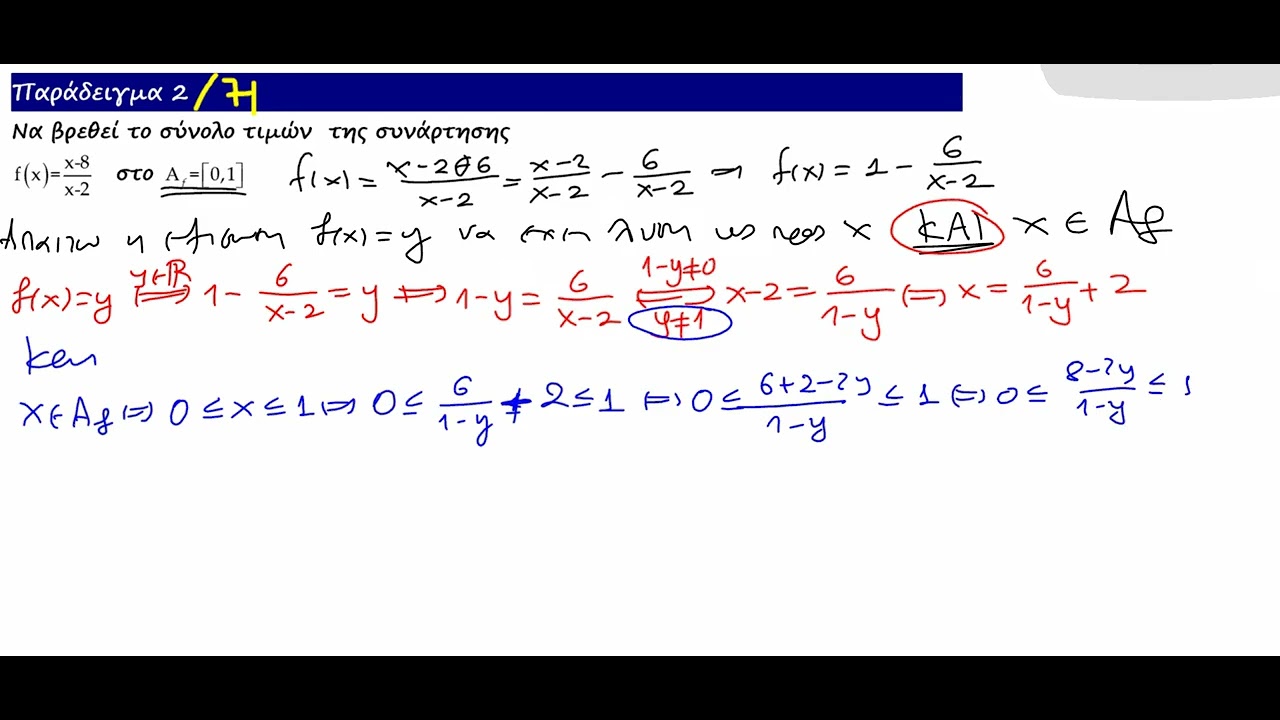 Παράδειγμα 2 / 71
Να βρεθεί το σύνολο τιμών της συνάρτησης
f(x)=(x-8)/(x-2) στο A_f=[0,1] f(x) = (x-2-6)/(x-2) = (x-2)/(x-2) - 6/(x-2) ⇒ f(x) = 1 - 6/(x-2)
Απαιτω η εξισωση f(x)=y να εχει λυση ως προς x ΚΑΙ x ∈ A_f
f(x)=y ⇔ (y∈ℝ) 1 - 6/(x-2) = y ⇔ 1-y = 6/(x-2) ⇔ (1-y≠0, y≠1) x-2 = 6/(1-y) ⇔ x = 6/(1-y) + 2
και
x∈A_f ⇔ 0 ≤ x ≤ 1 ⇔ 0 ≤ 6/(1-y) + 2 ≤ 1 ⇔ 0 ≤ (6+2-2y)/(1-y) ≤ 1 ⇔ 0 ≤ (8-2y)/(1-y) ≤